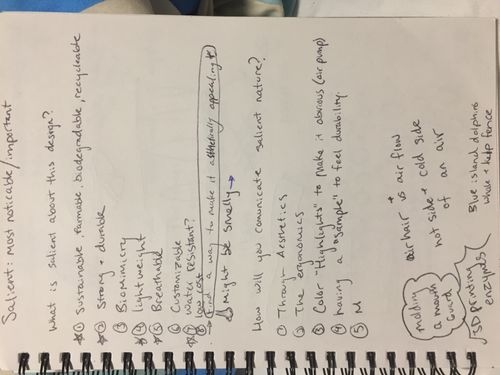 Salient: most noticeable/important
What is salient about this design?
*① Sustainable, farmable, biodegradable, recycleable
*② Strong + durable
③ Biomimicry
*④ lightweight
*⑤ Breathable
⑥ Customizable
*⑦ water resistant?
⑧ low cost
→ find a way to make it asthetically appealing *
might be smelly →
How will you comunicate salient nature?
① Through Aesthetics
② The ergonomics
③ Color "Highlights" to make it obvious (air pump)
④ having a "sample" to feel durability.
⑤ M
air hair vs air flow
hot side + cold side
of an air
molding
a mouth
guard
3D printing
enzymes
Blue island dolphins
whale + kelp fence